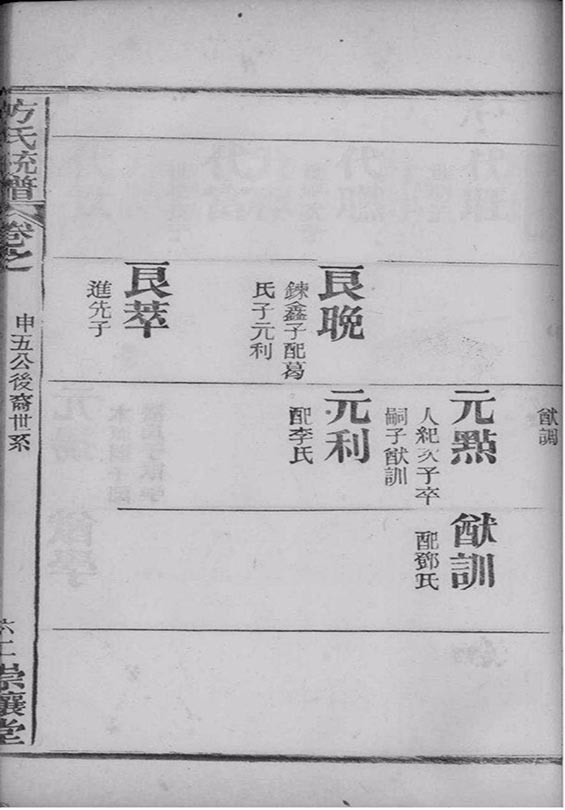 猷調
元點
人紀次子卒
嗣子猷訓
猷訓
配鄧氏
良晚
錬鑫子配葛
氏子元利
元利
配李氏
良萃
進先子
方氏統譜
卷之
申五公後裔世系
崇讓堂